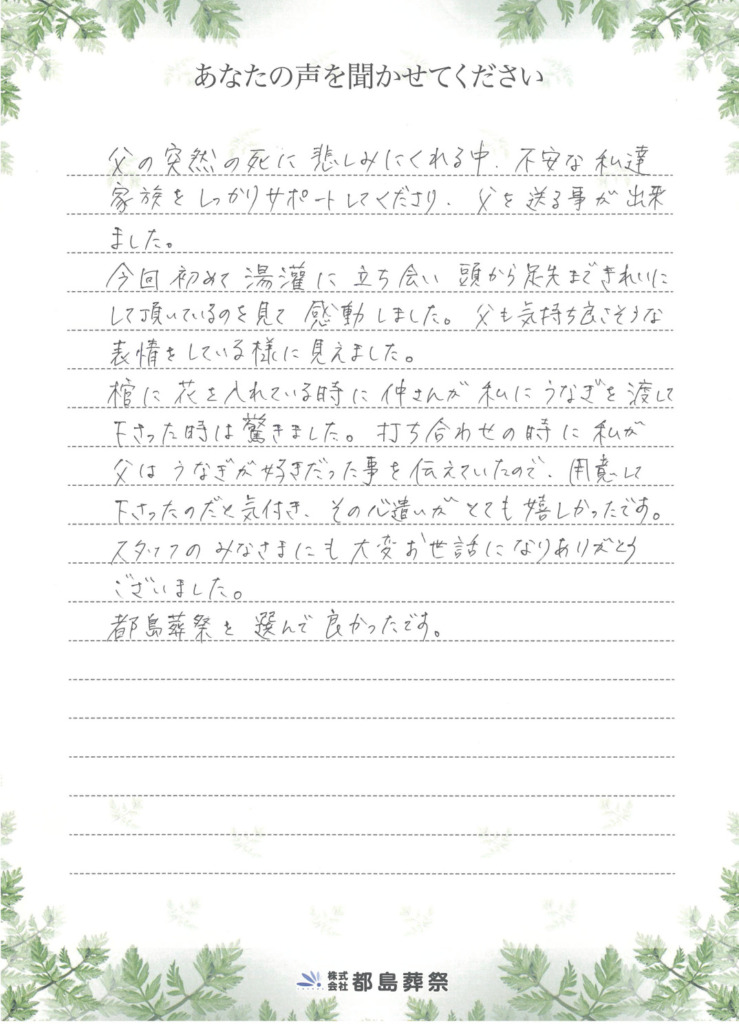 あなたの声を聞かせてください
父の突然の死に悲しみにくれる中、不安な私達
家族をしっかりサポートしてくださり、父を送る事が出来
ました。
今回初めて湯灌に立ち会い頭から足先まできれいに
して頂いているのを見て感動しました。父も気持ち良さそうな
表情をしている様に見えました。
棺に花を入れている時に仲さんが私にうなぎを渡して
下さった時は驚きました。打ち合わせの時に私が
父はうなぎが好きだった事を伝えていたので、用意して
下さったのだと気付き、その心遣いがとても嬉しかったです。
スタッフのみなさまにも大変お世話になりありがとう
ございました。
都島葬祭を選んで良かったです。
株式会社 都島葬祭